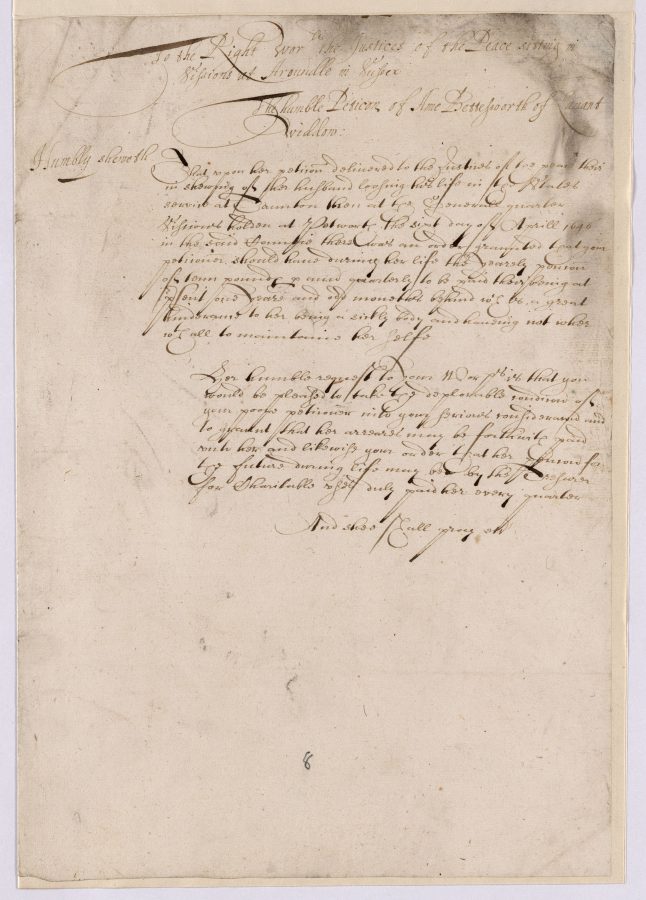 To the Right Wor:ll the Justices of the Peace sitting in
Sessions at Arundle in Sussex
The humble Peticon of Ame Bettesworth of
Widdow:
Humbly sheweth
That upon her petition delivered to the Justices of the peace then
in shewing of her husband loosing his life in the States
service at Taunton then at the Generall quarter
Sessions holden at Petworth the sixt day of Aprill 1646
in the said Countie there was an order graunted that your
petitioner should have during her life the yearely pencon
of tenn pounds p ann quarterly to be paid there being at
psent one yeare and odd moneths behind wch is a great
hinderance to her being a sickly body and having not where
wthall to maintaine her selfe
Her humble request to your Worps is that you
would be pleased to take the deplorable condicon of
your poore petitioner into your serious consideracon and
to graunt that her arreares may be forthwith paid
unto her and likewise your order that her pencon for
the future during life may be by the Tresurer
for Charitable uses duly paid her every quarter
And shee shall pray etc
8